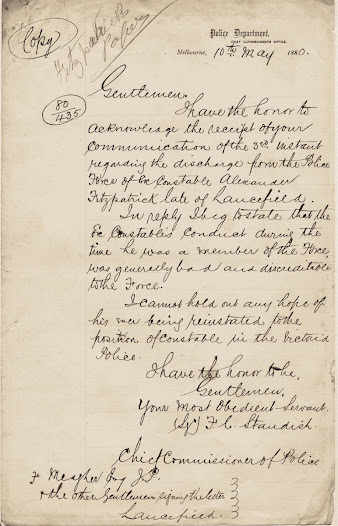 Copy
Fitzpatrick's
Papers
Police Department,
CHIEF COMMISSIONER'S OFFICE,
Melbourne, 10th May 1880.
80
435
Gentlemen,
I have the honor to
acknowledge the receipt of your
communication of the 3rd Instant
regarding the discharge from the Police
Force of Ex Constable Alexander
Fitzpatrick late of Lancefield.
In reply I beg to state that the
Ex Constable's conduct during the
time he was a member of the Force,
was generally bad and discreditable
to the Force.
I cannot hold out any hope of
his ever being reinstated to the
position of Constable in the Victoria
Police.
I have the honor to be,
Gentlemen,
Your Most Obedient Servant.
(Sg) F. C. Standish.
Chief Commissioner of Police
F Meagher Esq J.P.
& the other Gentlemen signing the letter
Lancefield.